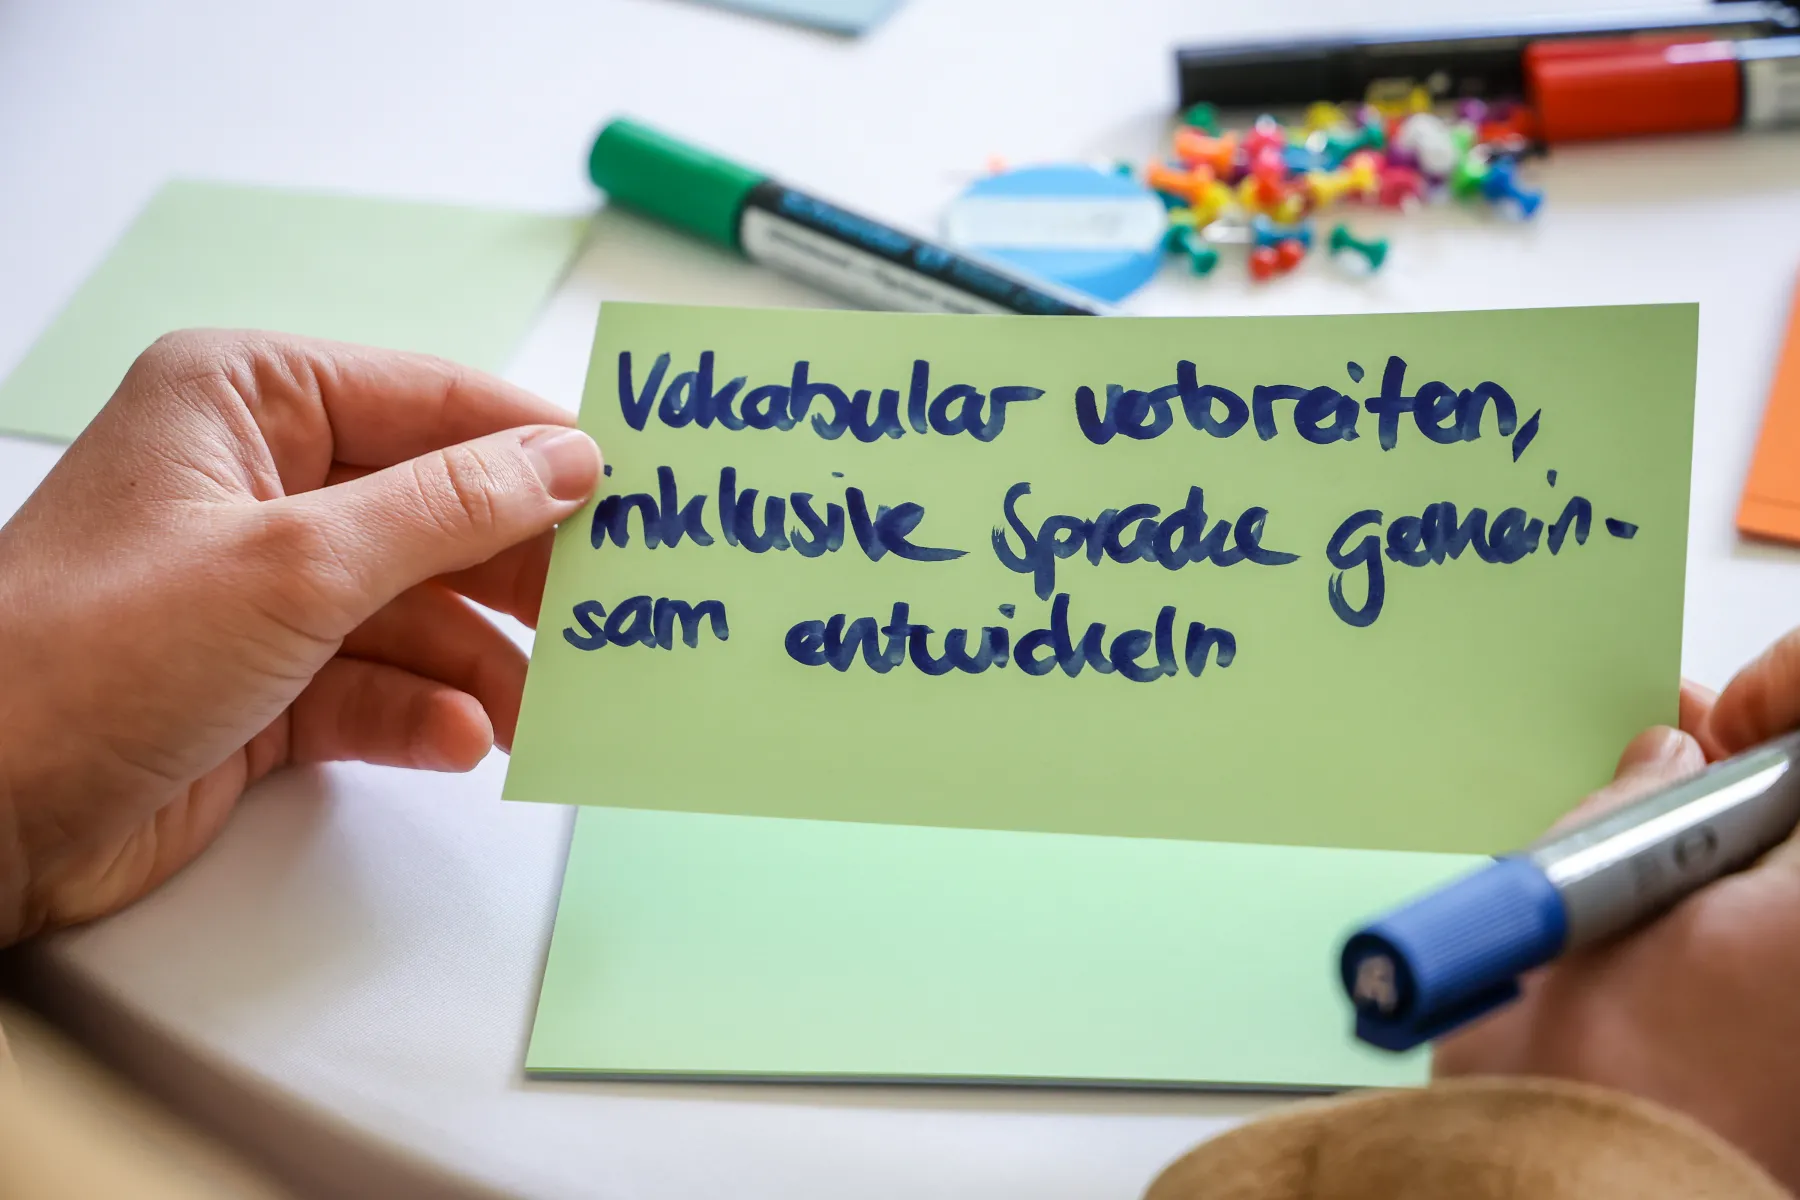 Vokabular vorbreiten,
inklusive Sprache gemein-
sam entwickeln